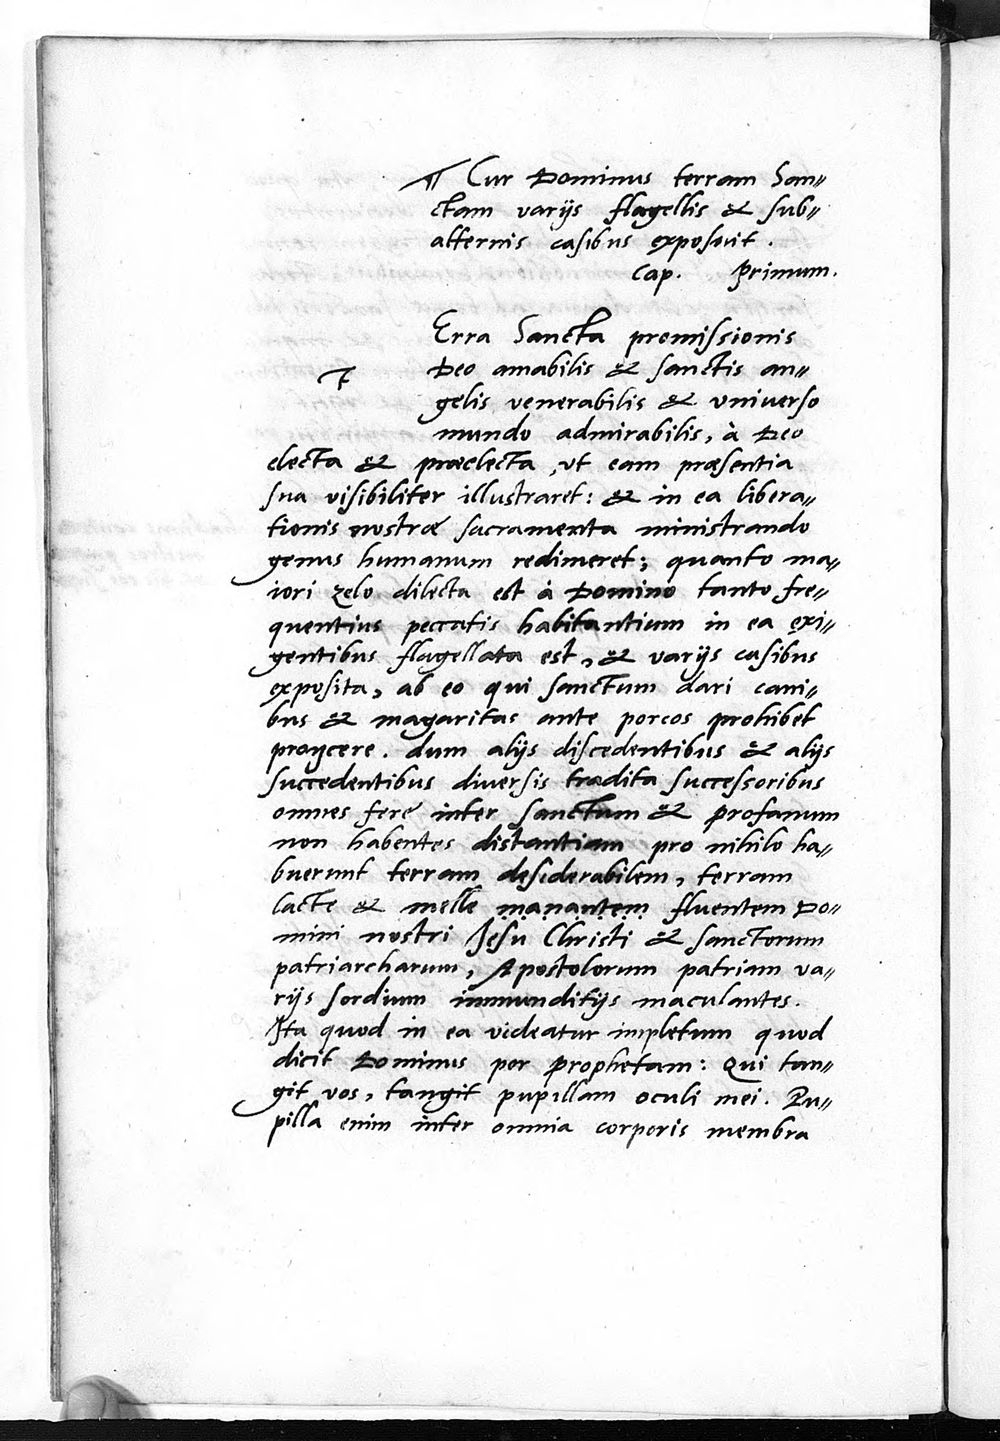 ¶ Cur Dominus terram San=
ctam varijs flagellis & sub=
alternis casibus exposuit.
Cap. Primum.
Erra Sancta promissionis
T Deo amabilis & sanctis an=
gelis venerabilis & vniuerso
mundo admirabilis, à Deo
electa & præelecta, vt eam præsentia
sua visibiliter illustraret: & in ea libera=
tionis nostræ sacramenta ministrando
genus humanum redimeret; quanto ma=
iori zelo dilecta est à Domino tanto fre=
quentius peccatis habitantium in ea exi=
gentibus flagellata est, & varijs casibus
exposita, ab eo qui sanctum dari cani=
bus & magaritas ante porcos prohibet
proijcere. dum alijs discedentibus & alijs
succedentibus diuersis tradita successoribus
omnes ferè inter sanctum & profanum
non habentes distantiam pro nihilo ha=
buerunt terram desiderabilem, terram
lacte & melle manantem fluentem Do=
mini nostri Jesu Christi & sanctorum
patriarcharum, Apostolorum patriam va=
rijs sordium immunditijs maculantes.
Ita quod in ea videatur impletum quod
dicit Dominus per prophetam: Qui tan=
git vos, tangit pupillam oculi mei. Pu=
pilla enim inter omnia corporis membra